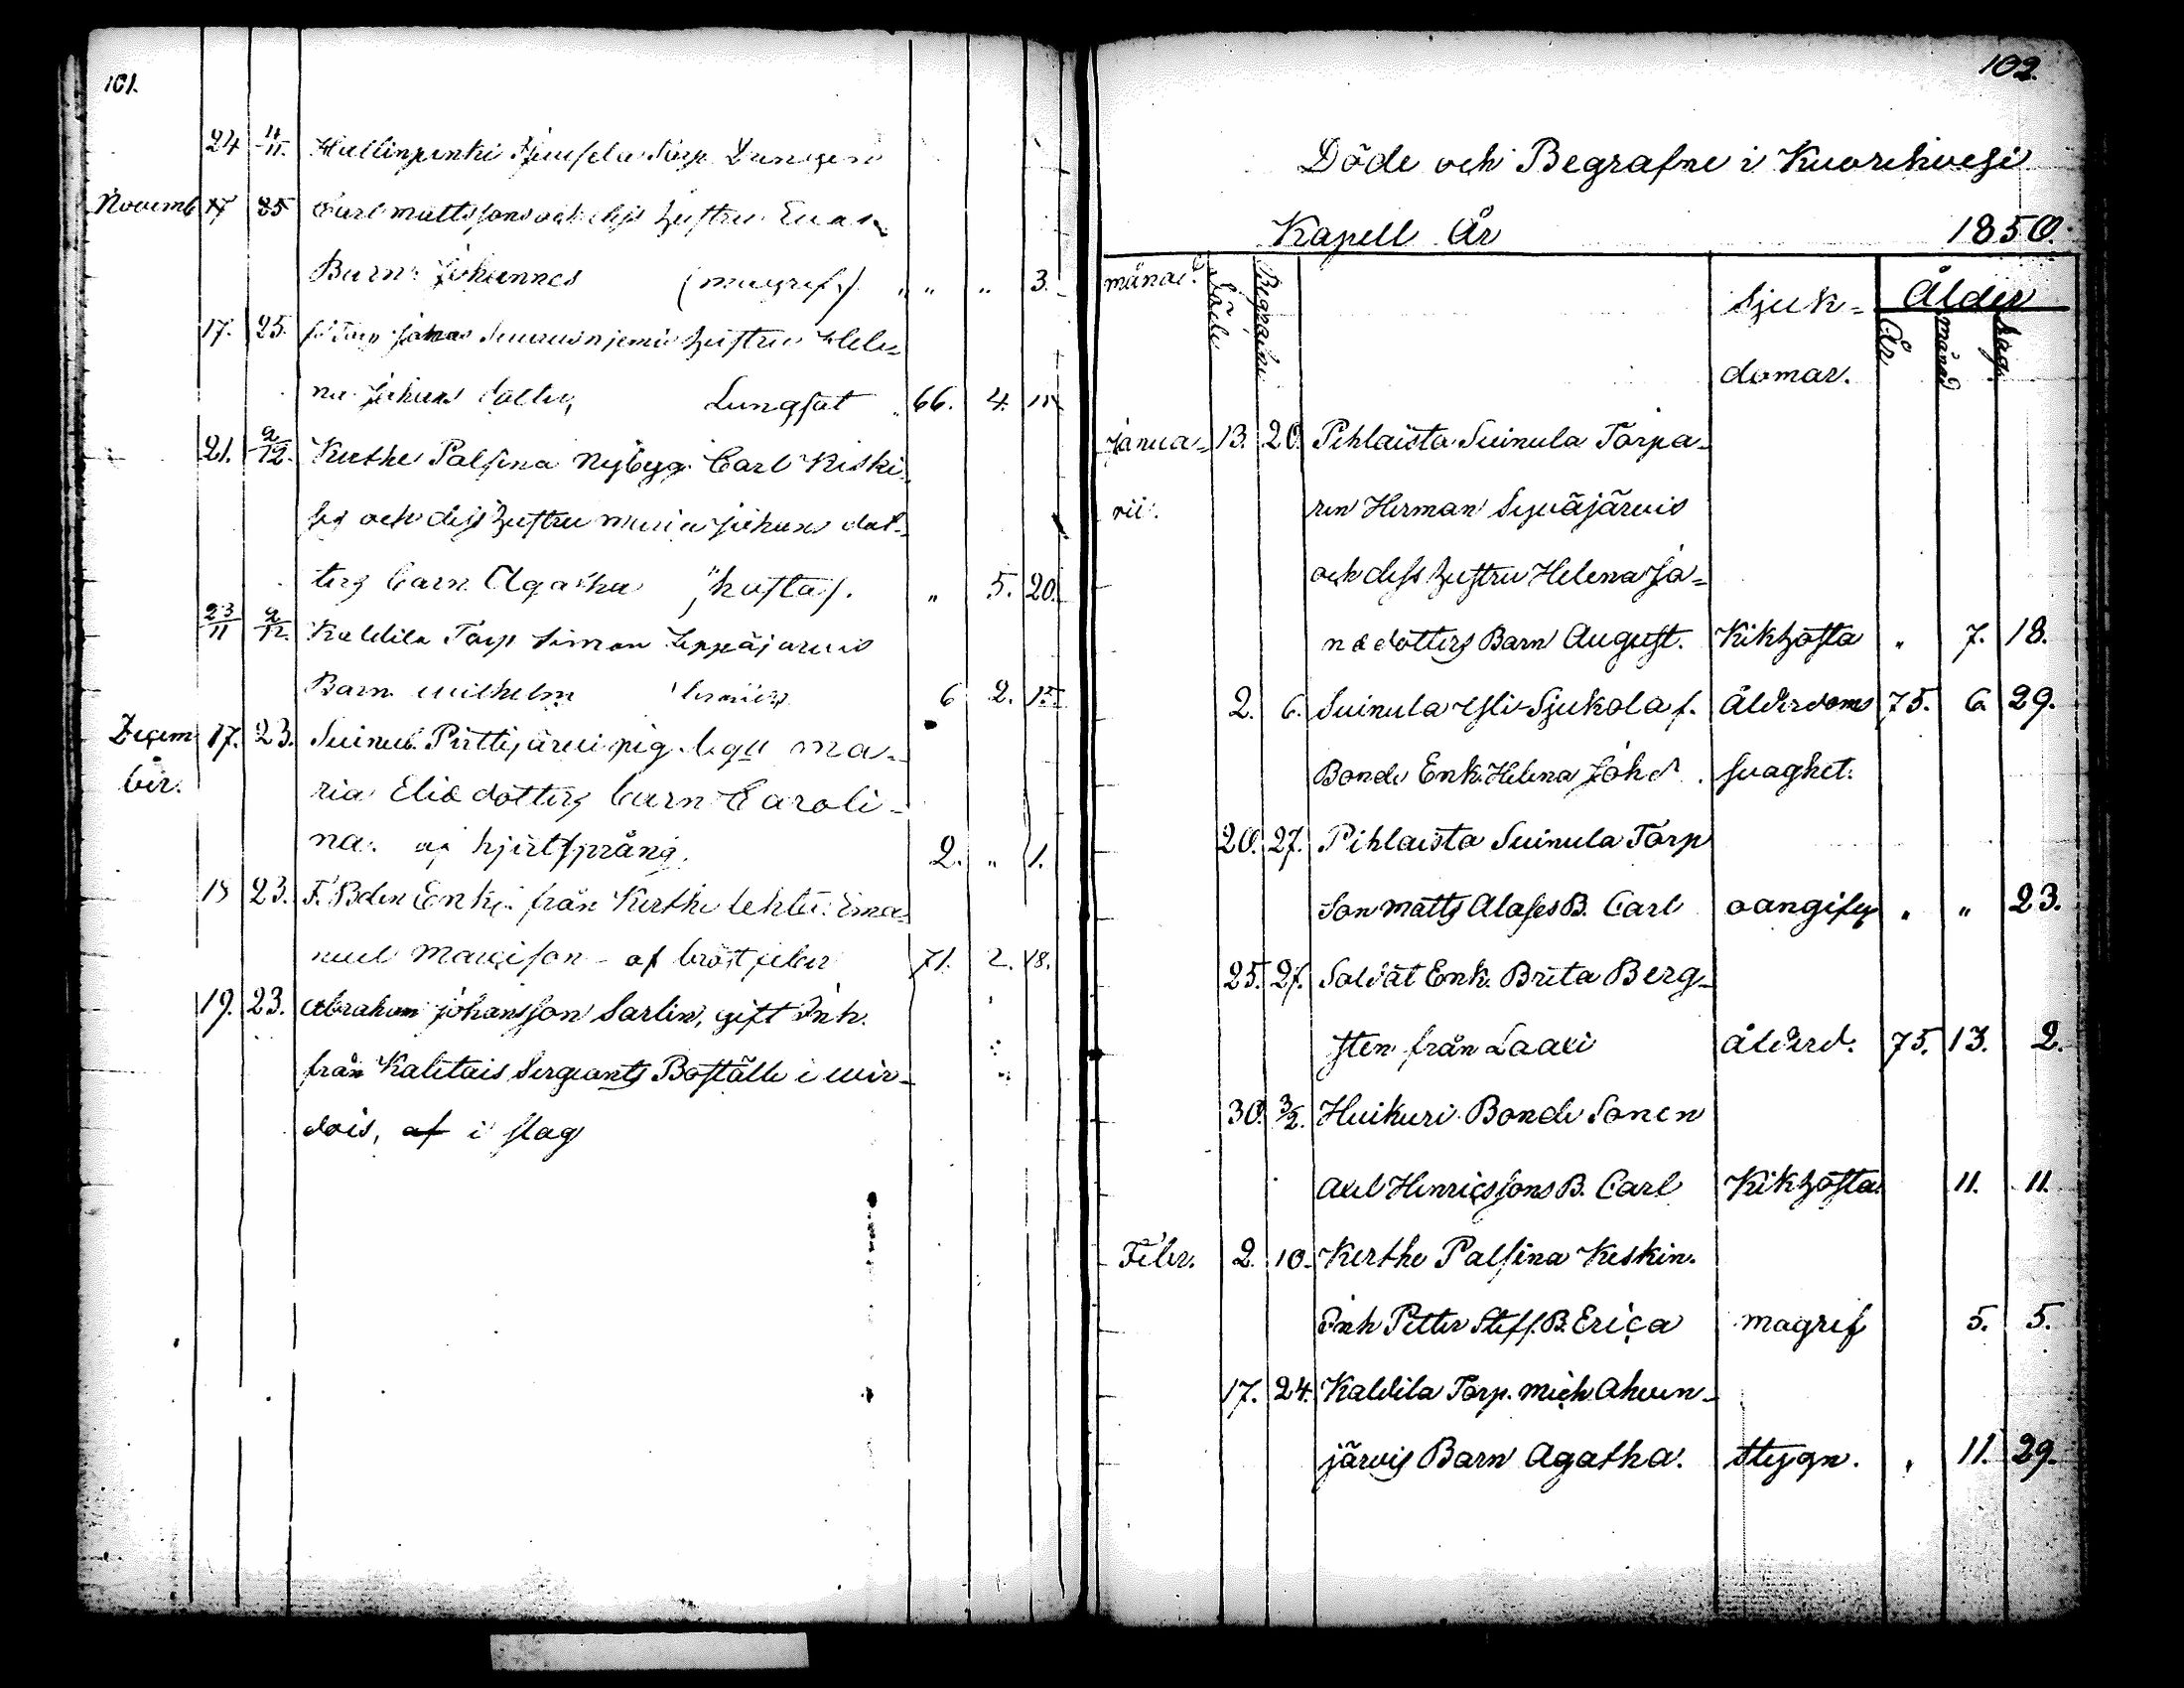 101.
24 4/11. Hallinpenki Torp
Novemb 17 25 Carl Mattssons och dess hustru Evas
Barn Johannes (magref) " " 3.
17. 25. Torp Johan hustru Hele-
na Johans dotter, Lungsot 66. 4.
21. 2/12. Kerthe Palsina Nybyg. Carl Kiski
och dess hustru Maria Johans dot-
ters barn Agatha hosta. " 5. 20.
23/11 2/12. Kaldila Torp Simon Leppäjärvis
Barn Wilhelm 6 2.
Decem 17. 23. Suinul. Pirttijärvi pig. Ma-
ber. ria Elia dotters barn Caroli-
na. af hjertsprång. 2. " 1.
18 23. F. Bden Enkl. från Kerthe lehti: Ema-
nuel - af bröstfeber 71. 2. 18.
19. 23. Abraham Johansson Sarlin, gift Inh.
från Kaletais Sergeants Boställe i Wir-
dois, af i slag
102.
Döde och Begrafne i Kuorehvesi
Kapell År 1850.
månad. Döde Begrafne Sjuk- Ålder
domar. År månad dag.
Janua- 13. 20. Pihlaista Suinula Torpa-
rii. ren Herman Syväjärvis
och dess hustru Helena Jo-
na dotters Barn August. Kikhosta " 7. 18.
2. 6. Suinula Yli-Sjukola f. Ålderdoms 75. 6. 29.
Bonde Enk. Helena Johd. svaghet.
20. 27. Pihlaista Suinula Torp
Son Matts B. Carl oangifven " " 23.
25. 27. Soldat Enk. Brita Berg-
sten från Laaxi Ålderd. 75. 13. 2.
30. 3/2. Huikuri Bonde Sonen
Axel Henricssons B. Carl Kikhosta 11. 11.
Febr. 2. 10. Kerthe Palsina Keskin.
Inh Petter Steff. B. Erica magref 5. 5.
17. 24. Kaldila Torp. Mich Ahven-
järvis Barn Agatha. stygn. " 11. 29.